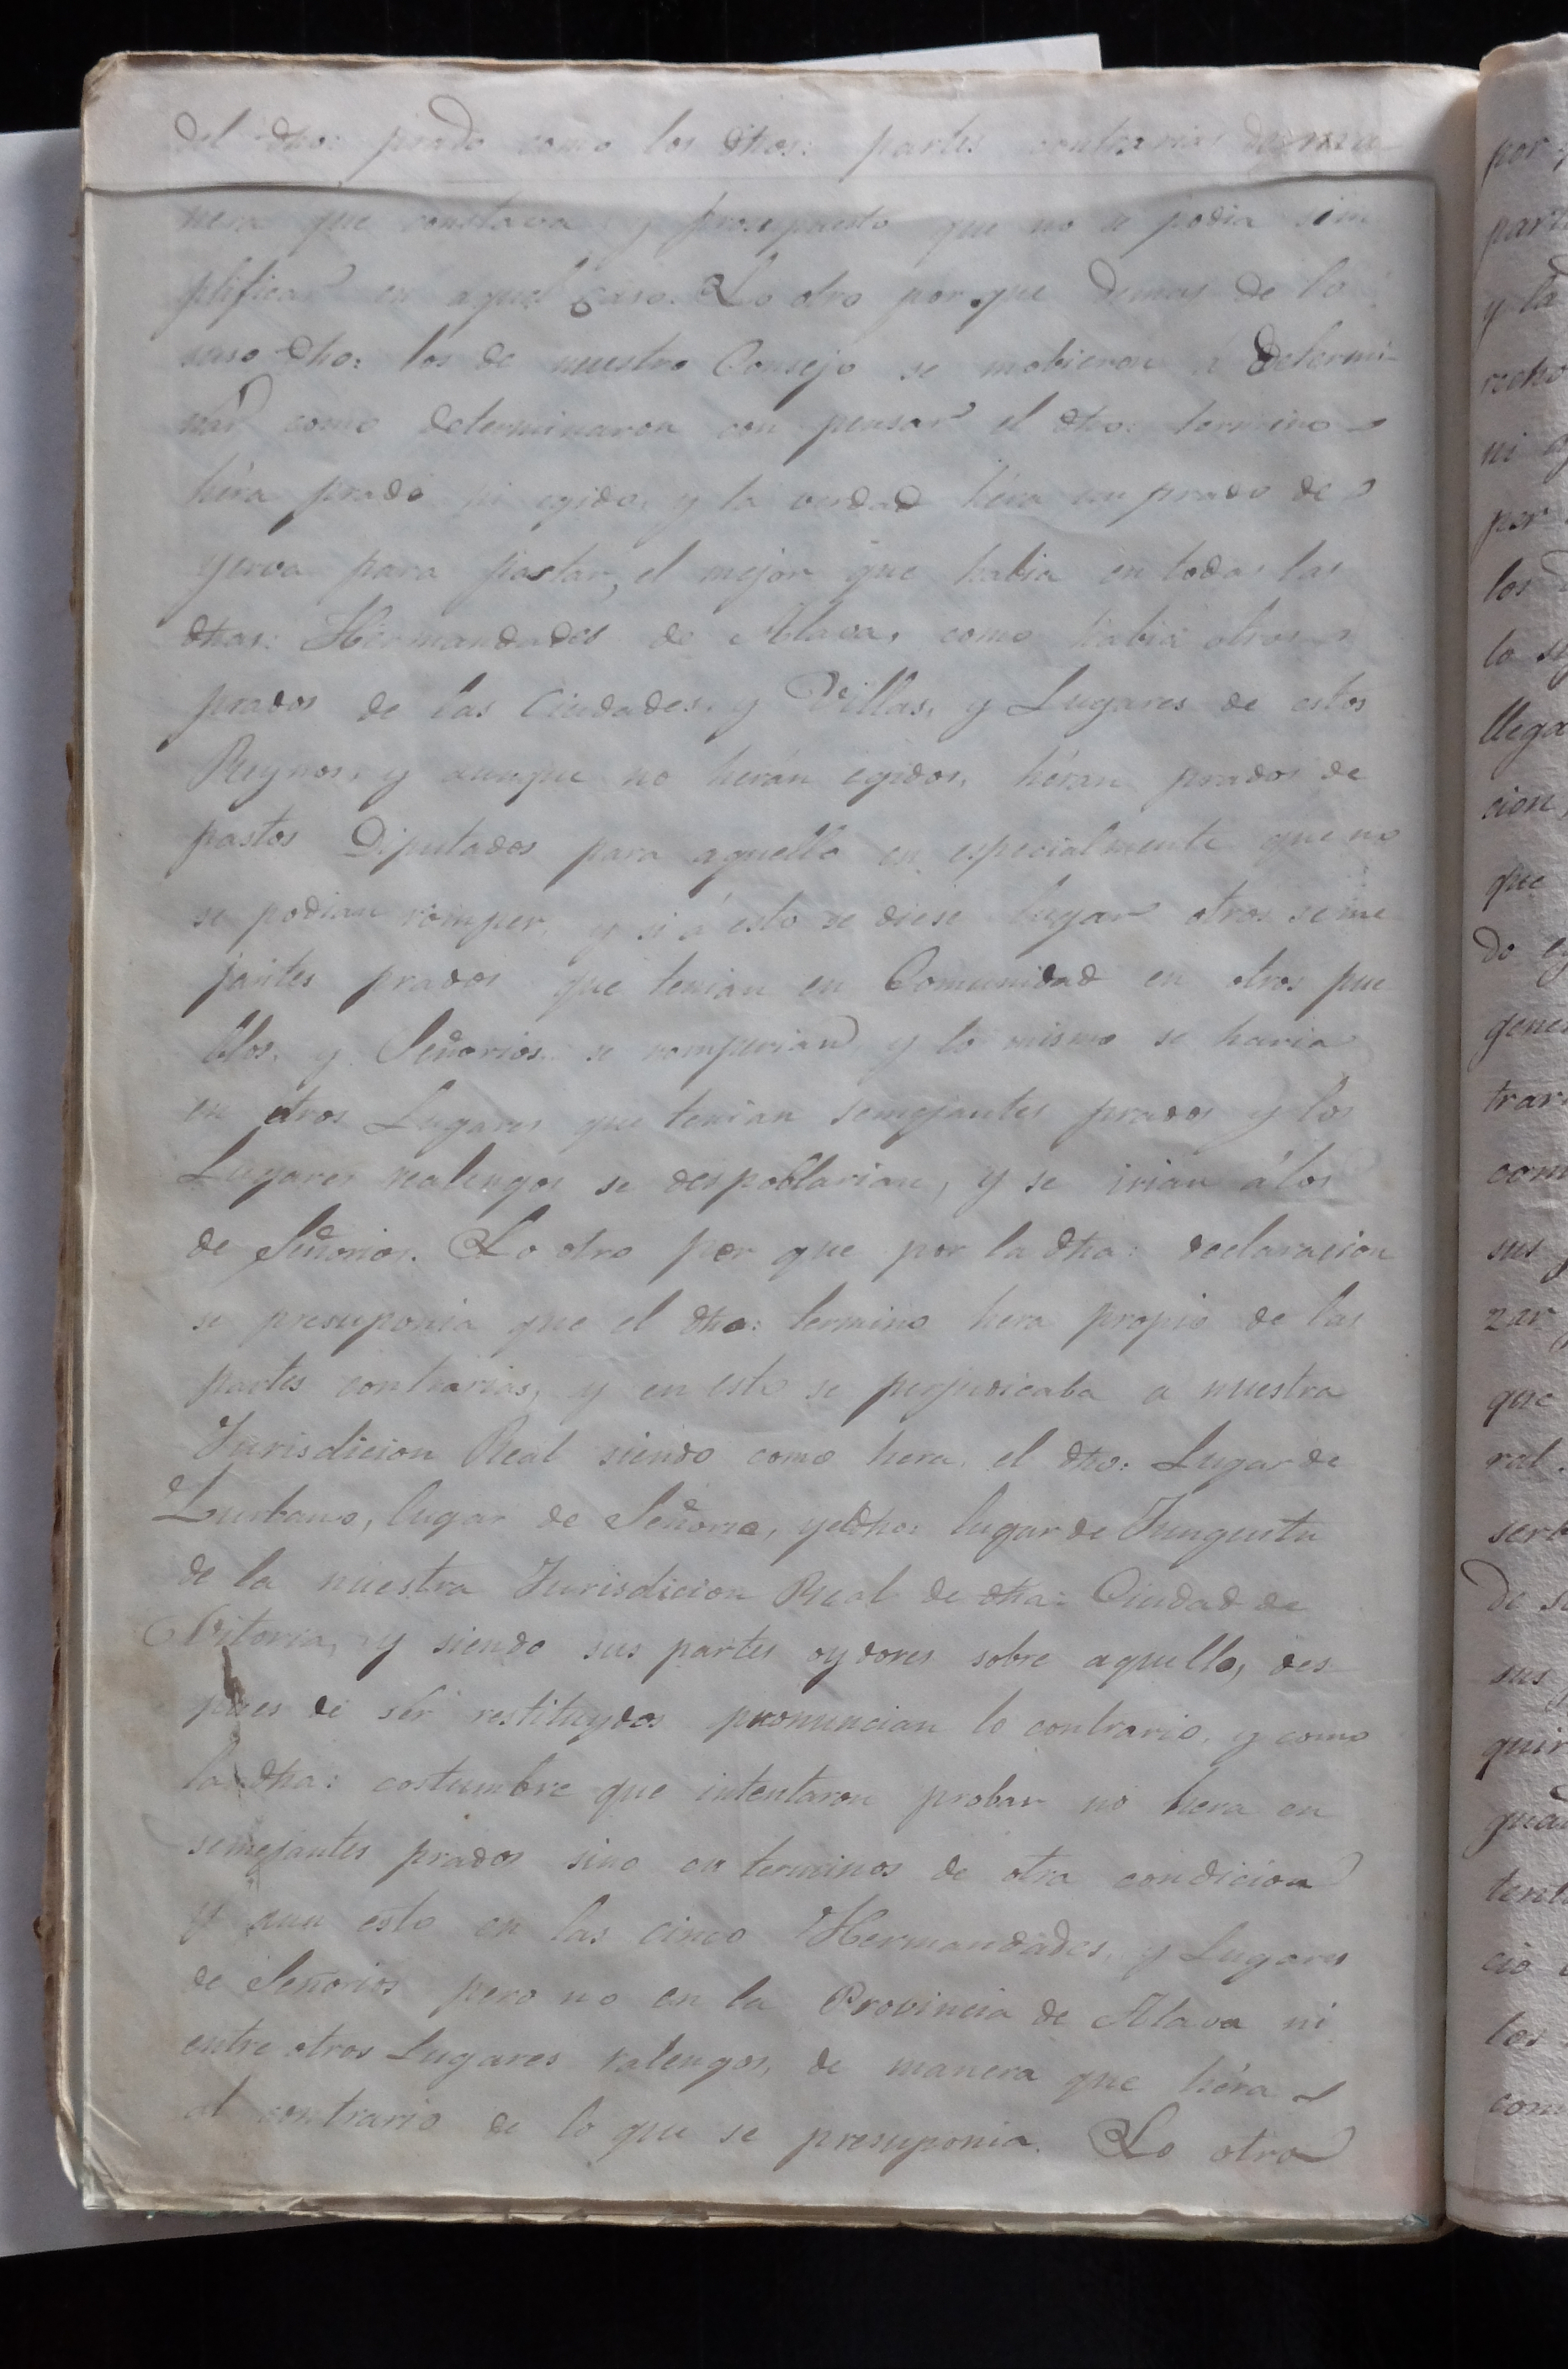 del dho: prado como los dhos: partes contrarias de ma
nera que constava y presupuesto que no se podia sim
plificar en aquel caso. Lo otro por que demas de lo
suso dho: los de nuestro Consejo se mobieron á determi-
nar como determinaron con pensar el dho: termino
héra prado ni egido, y la verdad héra un prado de
yerva para pastar, el mejor que habia en todas las
dhas: Hermandades de Alava, como habia otros
prados de las Ciudades, y Villas, y Lugares de estos
Reynos, y aunque no herán egidos, héran prados de
pastos Diputados para aquello en especialmente que no
se podian romper y si á esto se diese lugar otros seme
jantes prados que tenian en Comunidad en otros pue
blos, y Señorios se romperian y lo mismo se haria
en otros Lugares que tenian semejantes prados y los
Lugares realengos se despoblarian, y se irian á los
de Señorios. Lo otro por que por la dha: declaracion
se presuponia que el dho: termino hera propio de las
partes contrarias, y en esto se perjudicaba a nuestra
Jurisdicion Real siendo como hera el dho: Lugar de
Zurbano, lugar de Señorio, y el dho: lugar de Junguitu
de la nuestra Jurisdicion Real de dha: Ciudad de
Vitoria, y siendo sus partes oydores sobre aquello, des-
pues de ser restituydos pronuncian lo contrario, y como
la dha: costumbre que intentaron probar no hera en
semejantes prados sino en terminos de otra condicion
y aun esto en las cinco Hermandades, y Lugares
de Señorios pero no en la Provincia de Alava ni
entre otros Lugares ralengos, de manera que héra
al contrario de lo que se presuponia. Lo otro